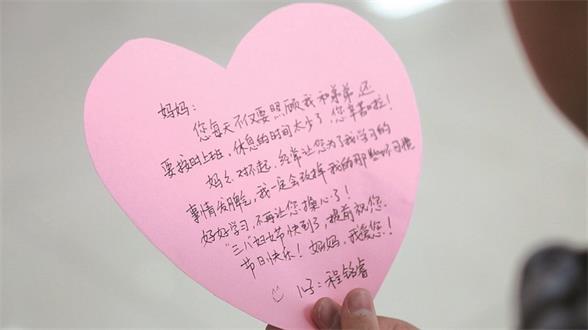 妈妈：
您每天不仅要照顾我和弟弟，还
要按时上班，休息的时间太少了，您辛苦啦！
妈妈，对不起，经常让您为了我学习的
事情发脾气，我一定会改掉我的那些坏习惯
好好学习，不再让您操心了！
"三八"妇女节快到了，提前祝您
节日快乐！妈妈，我爱您！
儿子：程铭睿